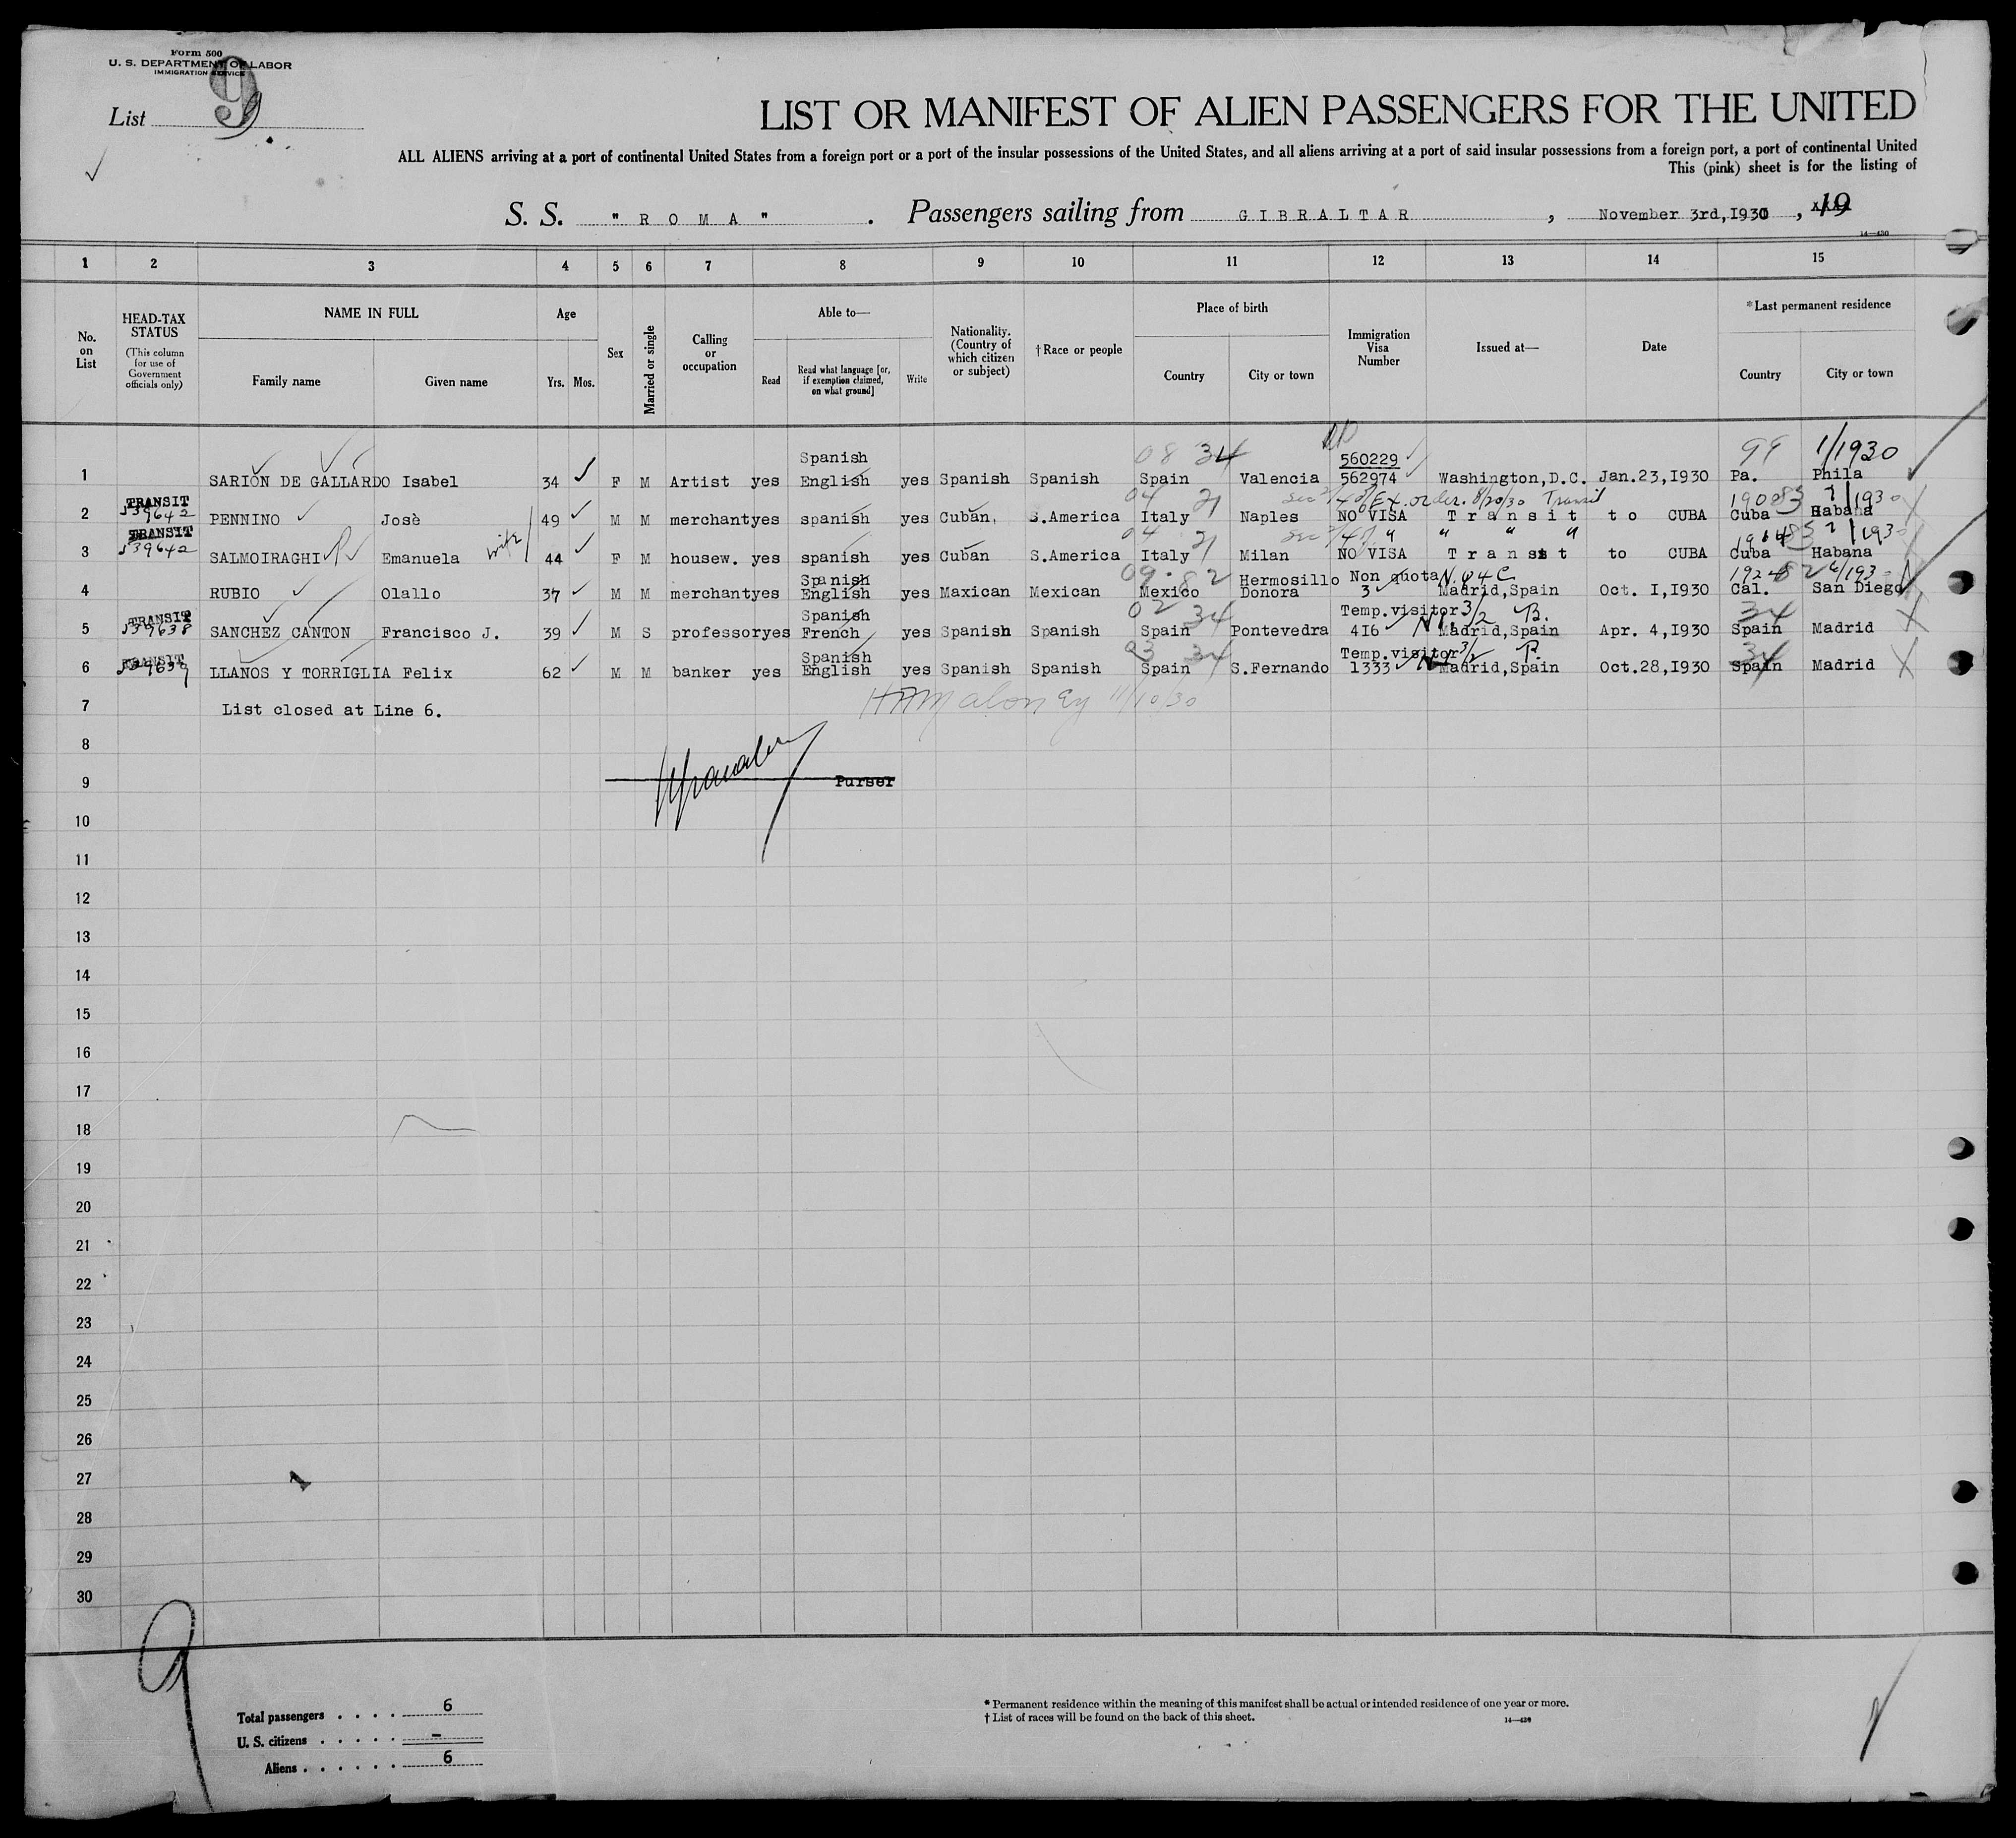 Form 500
U. S. DEPARTMENT OF LABOR
IMMIGRATION SERVICE
List 9
LIST OR MANIFEST OF ALIEN PASSENGERS FOR THE UNITED
ALL ALIENS arriving at a port of continental United States from a foreign port or a port of the insular possessions of the United States, and all aliens arriving at a port of said insular possessions from a foreign port, a port of continental United
This (pink) sheet is for the listing of
S. S. " R O M A " . Passengers sailing from G I B R A L T A R , November 3rd, I930 , 19
14—430
1 2 3 4 5 6 7 8 9 10 11 12 13 14 15
No. on List
HEAD-TAX STATUS
(This column for use of Government officials only)
NAME IN FULL
Family name Given name
Age
Yrs. Mos.
Sex
Married or single
Calling or occupation
Able to—
Read
Read what language [or, if exemption claimed, on what ground]
Write
Nationality. (Country of which citizen or subject)
†Race or people
Place of birth
Country City or town
Immigration Visa Number
Issued at—
Date
*Last permanent residence
Country City or town
08 34 99 1/1930
Spanish 560229
1 SARION DE GALLARDO Isabel 34 F M Artist yes English yes Spanish Spanish Spain Valencia 562974 Washington,D.C. Jan.23,I930 Pa. Phila
TRANSIT 539642 04 21 Ex. order. 8/20/30 Transit 1908 83 ?/1930
2 PENNINO Josè 49 M M merchant yes spanish yes Cuban, S.America Italy Naples NO VISA T r a n s i t t o CUBA Cuba Habana
TRANSIT 539642 wife 04 21 " " " 83 ?/1930
3 SALMOIRAGHI Emanuela 44 F M housew. yes spanish yes Cuban S.America Italy Milan NO VISA T r a n s i t to CUBA Cuba Habana
Spanish 09 82 Hermosillo Non quota 1924 82 6/1930
4 RUBIO Olallo 37 M M merchant yes English yes Maxican Mexican Mexico Donora 3 Madrid,Spain Oct. I,I930 Cal. San Diego
TRANSIT 539638 Spanish 02 34 Temp.visitor 3/2 B. 34
5 SANCHEZ CANTON Francisco J. 39 M S professor yes French yes Spanish Spanish Spain Pontevedra 4I6 Madrid,Spain Apr. 4,I930 Spain Madrid
TRANSIT 539639 Spanish 03 34 Temp.visitor 3/2 34
6 LLANOS Y TORRIGLIA Felix 62 M M banker yes English yes Spanish Spanish Spain S.Fernando 1333 Madrid,Spain Oct.28,I930 Spain Madrid
7 List closed at Line 6. 11/10/30
8
9 Purser
10
11
12
13
14
15
16
17
18
19
20
21
22
23
24
25
26
27
28
29
30
9
Total passengers . . . . 6
U. S. citizens . . . . . -
Aliens . . . . . . 6
* Permanent residence within the meaning of this manifest shall be actual or intended residence of one year or more.
† List of races will be found on the back of this sheet.
14—430